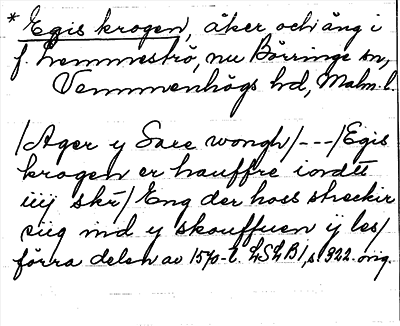 * Egis krogen, åker och äng i
f. Lemmeströ, nu Börringe sn,
Vemmenhögs hd, Malm. l.
/Ager y Saxe wongh/---/Egis
krogen er hauffre iordtt
iiij skr/ Eng der hoss streckir
siig ind y skouffuen ij les/
förra delen av 1570-t. LSLB1, s. 322. orig.